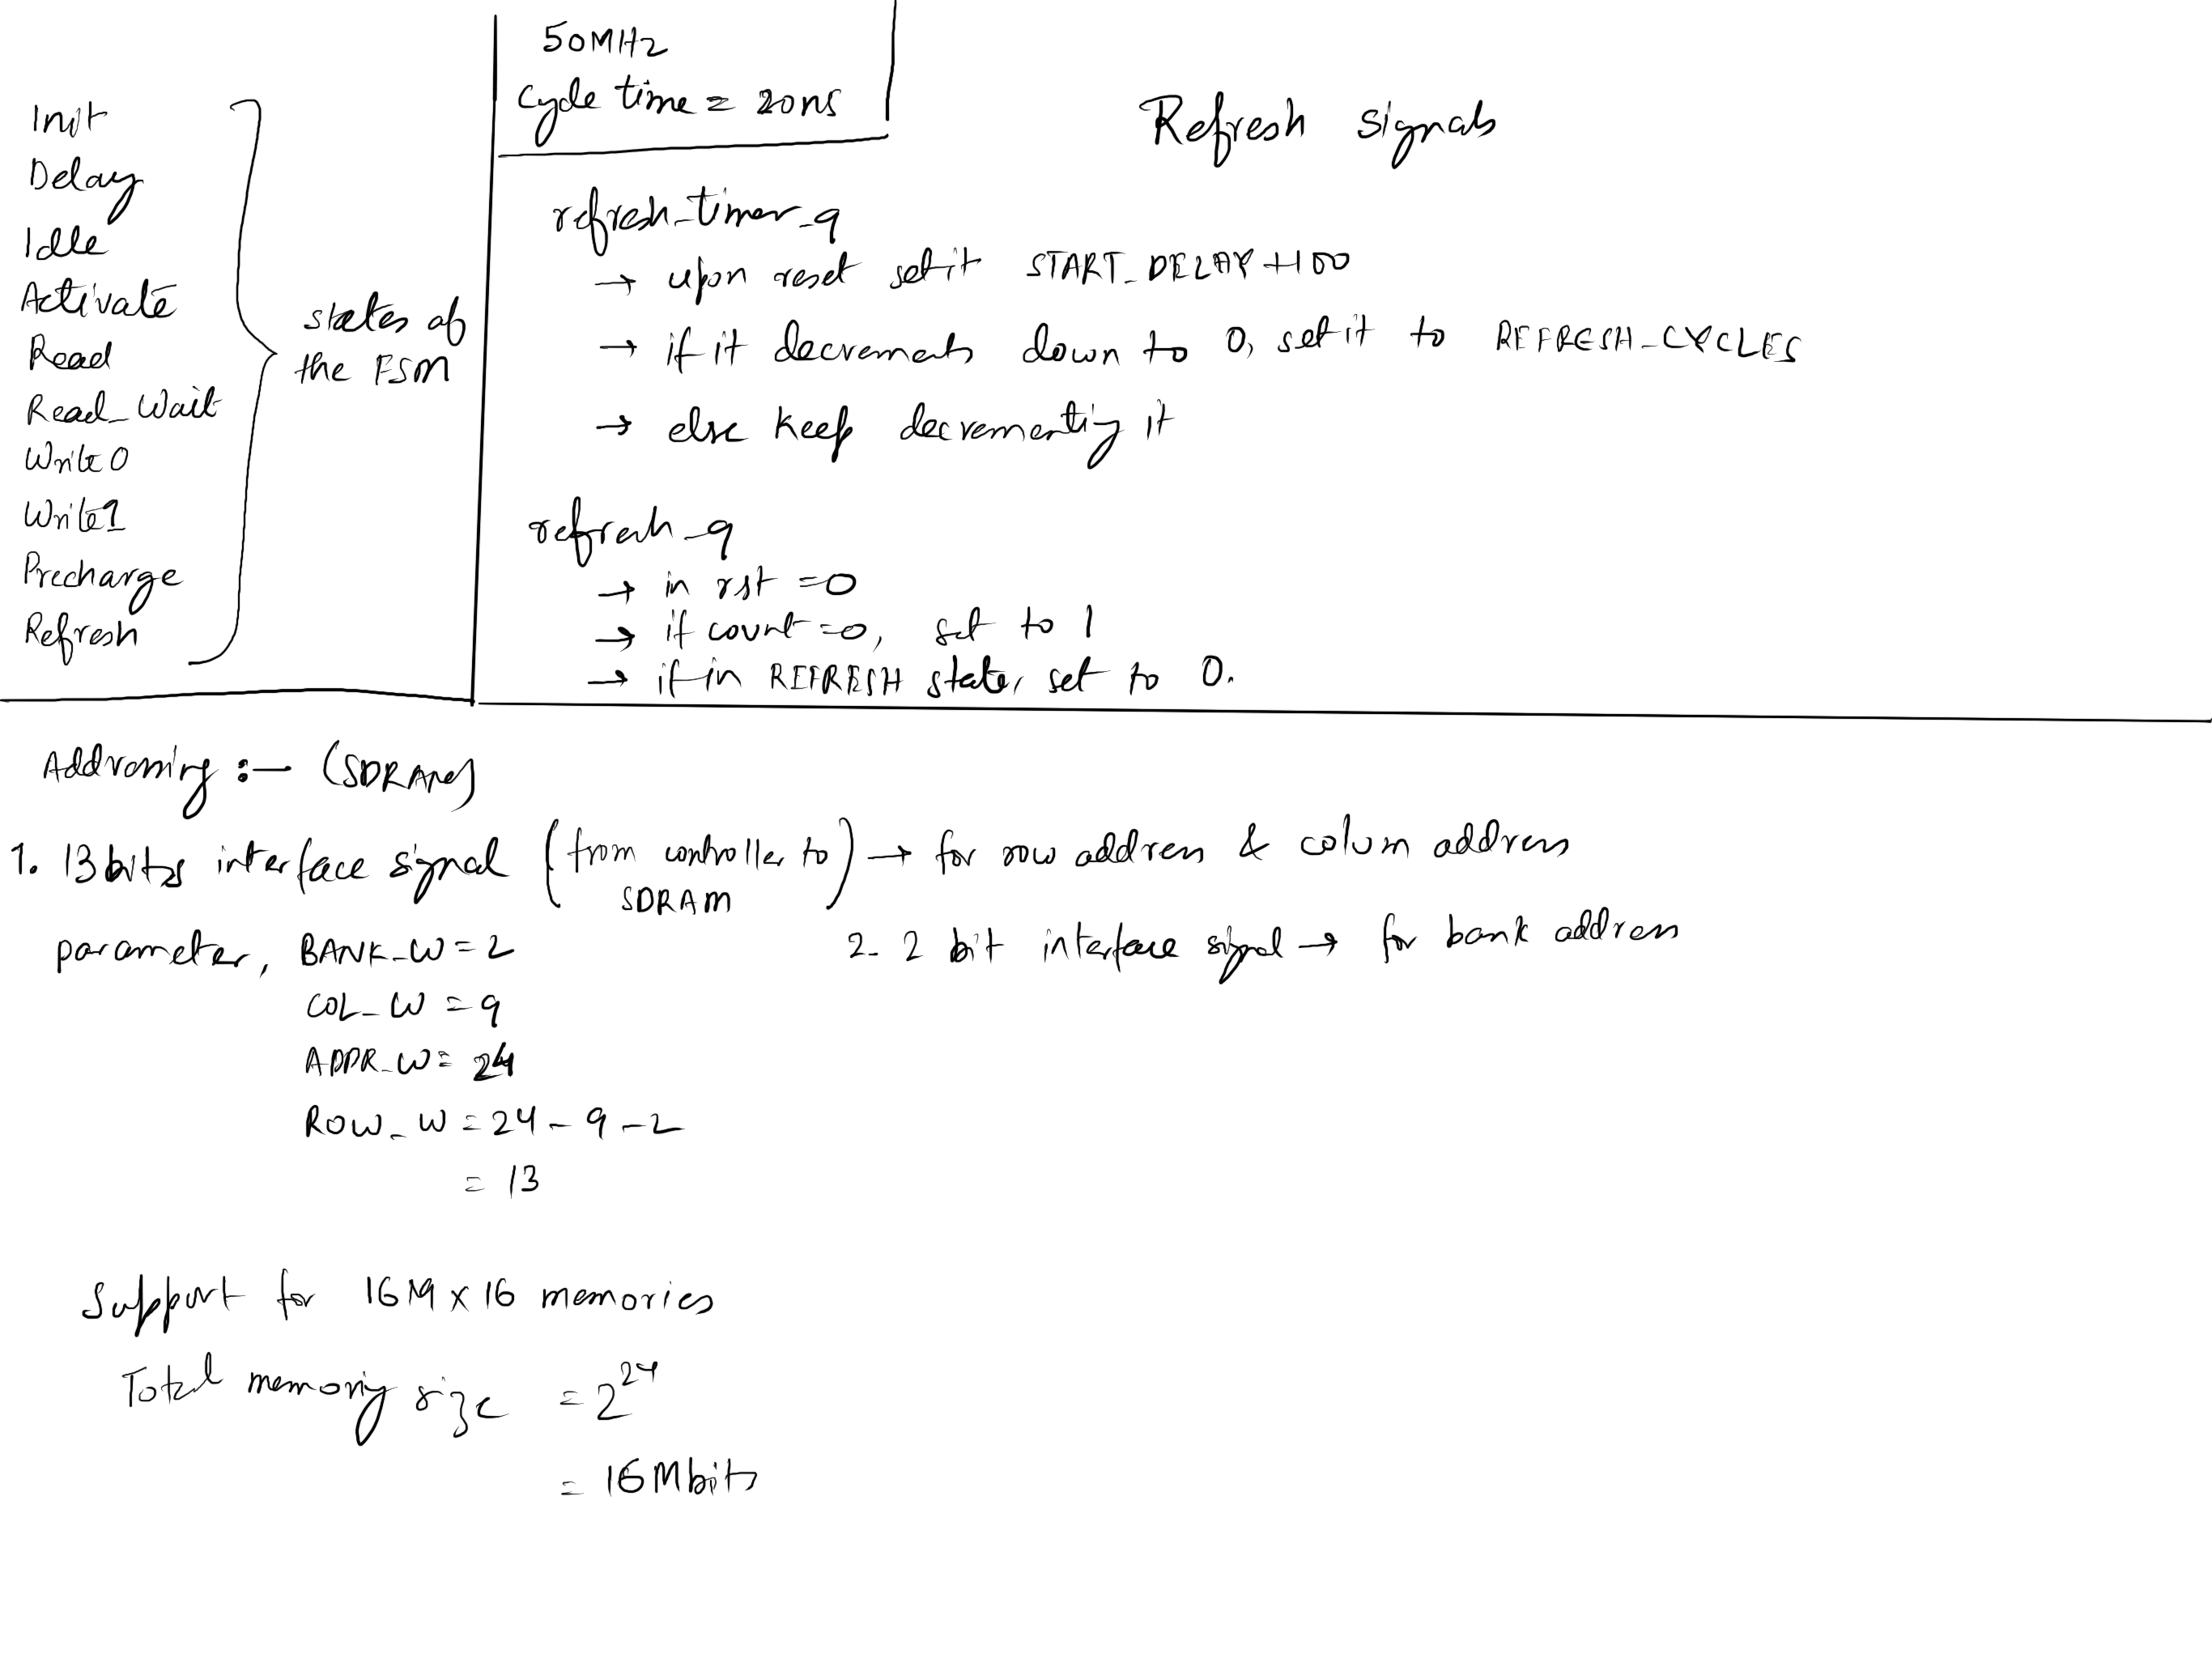 Init
Delay
Idle
Activate
Read
Read_Wait
Write0
Write1
Precharge
Refresh
states of
the FSM
50MHz
Cycle time = 20ns
Refresh signals
refresh_timer_q
→ upon reset set it START_DELAY+100
→ if it decrements down to 0, set it to REFRESH_CYCLES
→ else keep decrementing it
refresh_q
→ in rst =0
→ if count=0, set to 1
→ if in REFRESH state, set to 0.
Addressing :- (SDRAM)
1. 13 bits interface signal (from controller to SDRAM) → for row address & colum address
2. 2 bit interface signal → for bank address
parameter, BANK_W = 2
COL_W = 9
ADDR_W = 24
ROW_W = 24 - 9 - 2
= 13
Support for 16M x 16 memories
Total memory size = 2²⁴
= 16Mbits